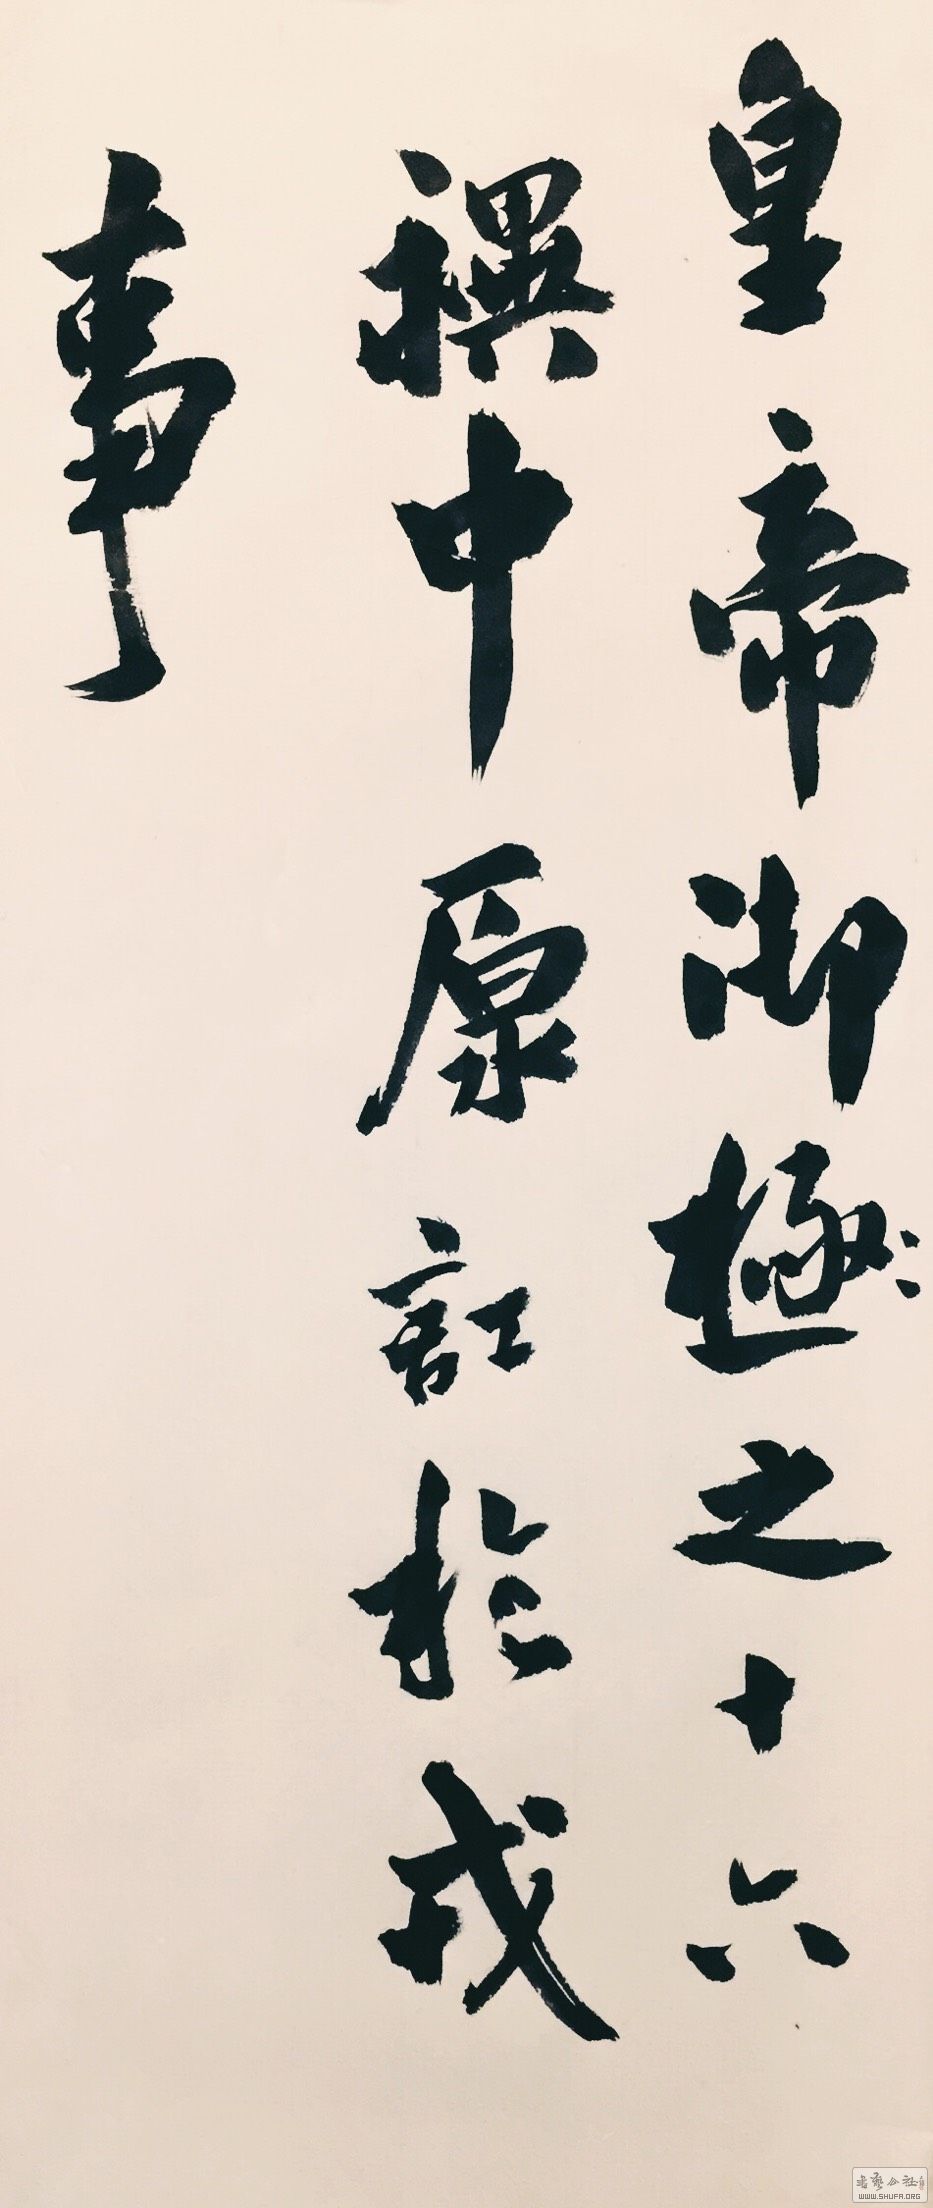 皇帝御極之十六
禩中原訌於戎
事
書藝公社
WWW.SHUFA.ORG